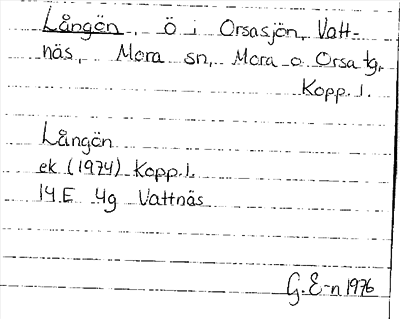 Långön, ö i Orsasjön, Vatt-
näs, Mora sn, Mora o Orsa tg,
Kopp. l.
Långön
ek (1974) Kopp. l.
14 E 4g Vattnäs
G. E-n 1976